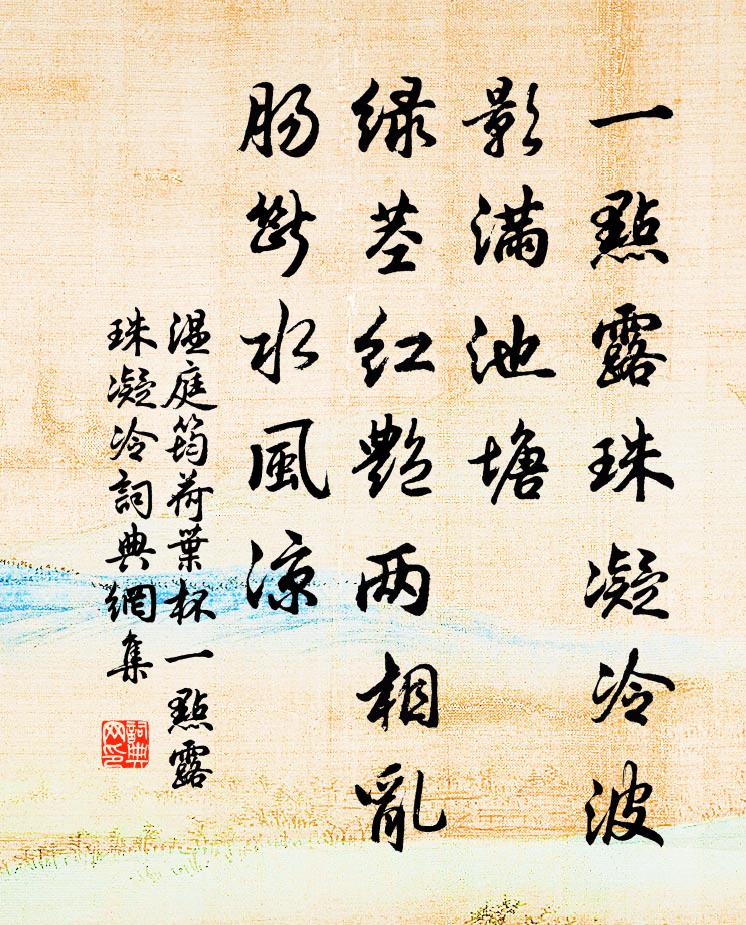 一點露珠凝冷波
影滿池塘
緑莖紅艷两相亂
肠斷水風凉
温庭筠荷葉杯一點露
珠凝冷詞典網集
詞典
网印